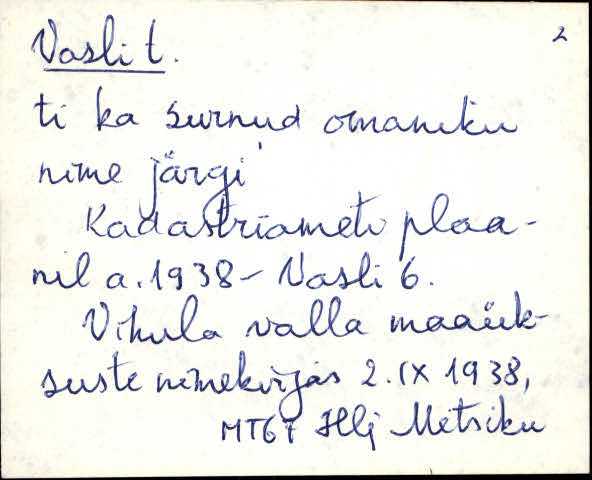 2
Vasli t.
ti ka surnud omaniku
nime järgi
Kadastriameti plaa-
nil a. 1938 - Vasli 6.
Vihula valla maaük-
suste nimekirjas 2. IX 1938,
Hlj Metsiku